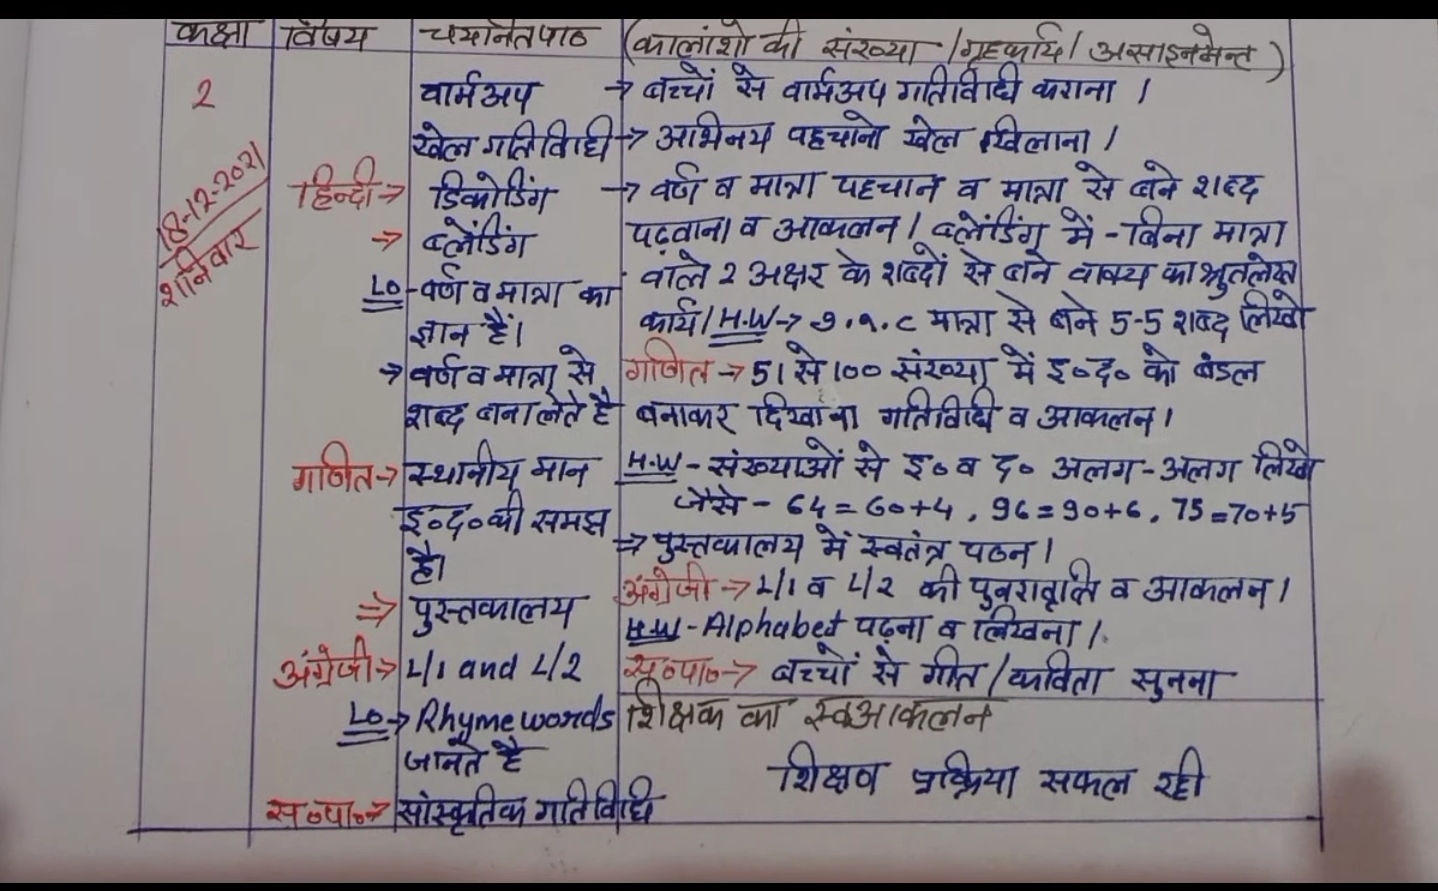 कक्षा विषय चयनित पाठ (कालांशो की संख्या /गृहकार्य/ असाइनमेन्ट)
2 वार्मअप → बच्चों से वार्मअप गतिविधि कराना ।
खेल गतिविधी → अभिनय पहचानो खेल खिलाना ।
18-12-2021
शनिवार
हिन्दी → डिकोडिंग → वर्ण व मात्रा पहचान व मात्रा से बने शब्द
→ ब्लेंडिंग पढ़वाना व आकलन। ब्लेंडिंग में - बिना मात्रा
LO - वर्ण व मात्रा का वाले 2 अक्षर के शब्दों से बने वाक्य का श्रुतलेख
ज्ञान हैं। कार्य/ H.W → मात्रा से बने 5-5 शब्द लिखो
→ वर्ण व मात्रा से गणित → 51 से 100 संख्या में इ॰द॰ को बंडल
शब्द बना लेते है बनाकर दिखाना गतिविधि व आकलन।
गणित → स्थानीय मान H.W - संख्याओं से इ॰ व द॰ अलग-अलग लिखो
इ॰द॰ की समझ जैसे - 64 = 60+4 , 96 = 90+6 , 75 = 70+5
है। ⇒ पुस्तकालय में स्वतंत्र पठन।
⇒ पुस्तकालय अंग्रेजी → L/1 व L/2 की पुनरावृति व आकलन।
H.W - Alphabet पढ़ना व लिखना।
अंग्रेजी → L/1 and L/2 स॰पा॰ → बच्चों से गीत/कविता सुनना
LO → Rhyme words शिक्षक का स्वआकलन
जानते है शिक्षण प्रक्रिया सफल रही
स॰पा॰ → सांस्कृतिक गतिविधि